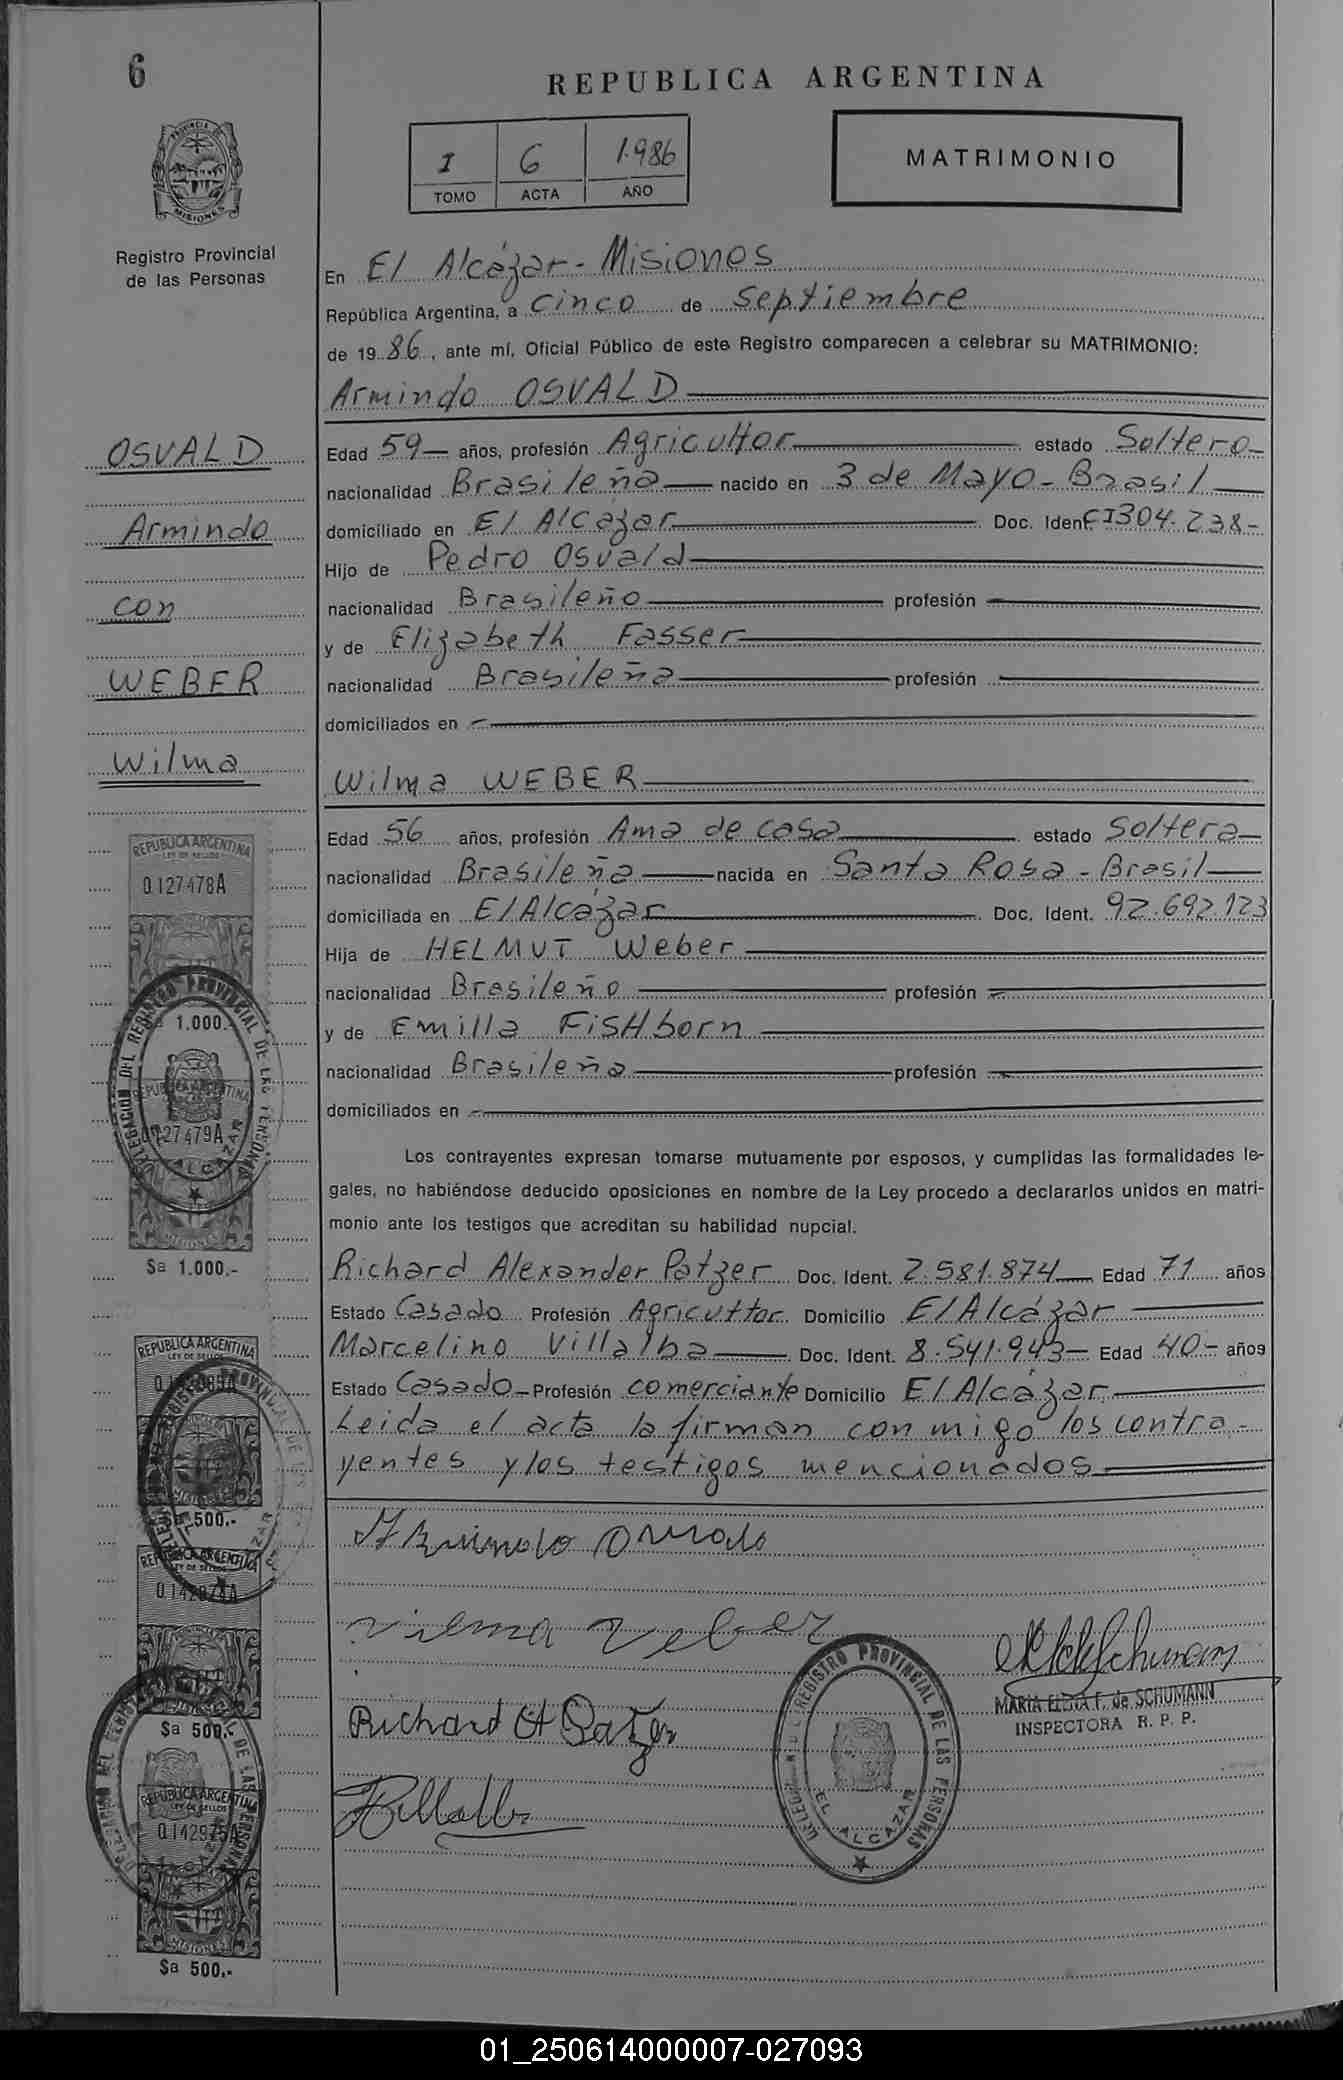 6
REPUBLICA ARGENTINA
I 6 1.986
TOMO ACTA AÑO
MATRIMONIO
PROVINCIA DE
MISIONES
Registro Provincial
de las Personas
En El Alcázar - Misiones
República Argentina, a Cinco de Septiembre
de 19 86, ante mí, Oficial Público de este Registro comparecen a celebrar su MATRIMONIO:
Armindo OSVALD
OSVALD
Armindo
con
WEBER
Wilma
Edad 59 años, profesión Agricultor estado Soltero
nacionalidad Brasileña nacido en 3 de Mayo - Brasil
domiciliado en El Alcázar Doc. Ident. CI304.238-
Hijo de Pedro Osvald
nacionalidad Brasileño profesión
y de Elizabeth Fasser
nacionalidad Brasileña profesión
domiciliados en
Wilma WEBER
Edad 56 años, profesión Ama de casa estado Soltera
nacionalidad Brasileña nacida en Santa Rosa - Brasil
domiciliada en El Alcázar Doc. Ident. 92.692.123
Hija de HELMUT Weber
nacionalidad Brasileño profesión
y de Emilla FiSHborn
nacionalidad Brasileña profesión
domiciliados en
Los contrayentes expresan tomarse mutuamente por esposos, y cumplidas las formalidades le-
gales, no habiéndose deducido oposiciones en nombre de la Ley procedo a declararlos unidos en matri-
monio ante los testigos que acreditan su habilidad nupcial.
Richard Alexander Patzer Doc. Ident. 2.581.874 Edad 71 años
Estado Casado Profesión Agricultor Domicilio El Alcázar
Marcelino Villalba Doc. Ident. 8.541.943 Edad 40 años
Estado Casado Profesión comerciante Domicilio El Alcázar
Leida el acta la firman con migo los contra-
yentes y los testigos mencionados
Armindo Osvald
Vilma Veber
Richard A Patzer
MARIA ELENA F. de SCHUMANN
INSPECTORA R. P. P.
DELEGACION DEL REGISTRO PROVINCIAL DE LAS PERSONAS
EL ALCAZAR
REPUBLICA ARGENTINA
LEY DE SELLOS
0.127478A
1.000.-
DELEGACION DEL REGISTRO PROVINCIAL DE LAS PERSONAS
REPUBLICA ARGENTINA
0.127479A
ALCAZAR
MISIONES
$a 1.000.-
REPUBLICA ARGENTINA
LEY DE SELLOS
$a 500.-
REPUBLICA ARGENTINA
LEY DE SELLOS
$a 500.-
REPUBLICA ARGENTINA
LEY DE SELLOS
0.142975A
MISIONES
$a 500.-
01_250614000007-027093